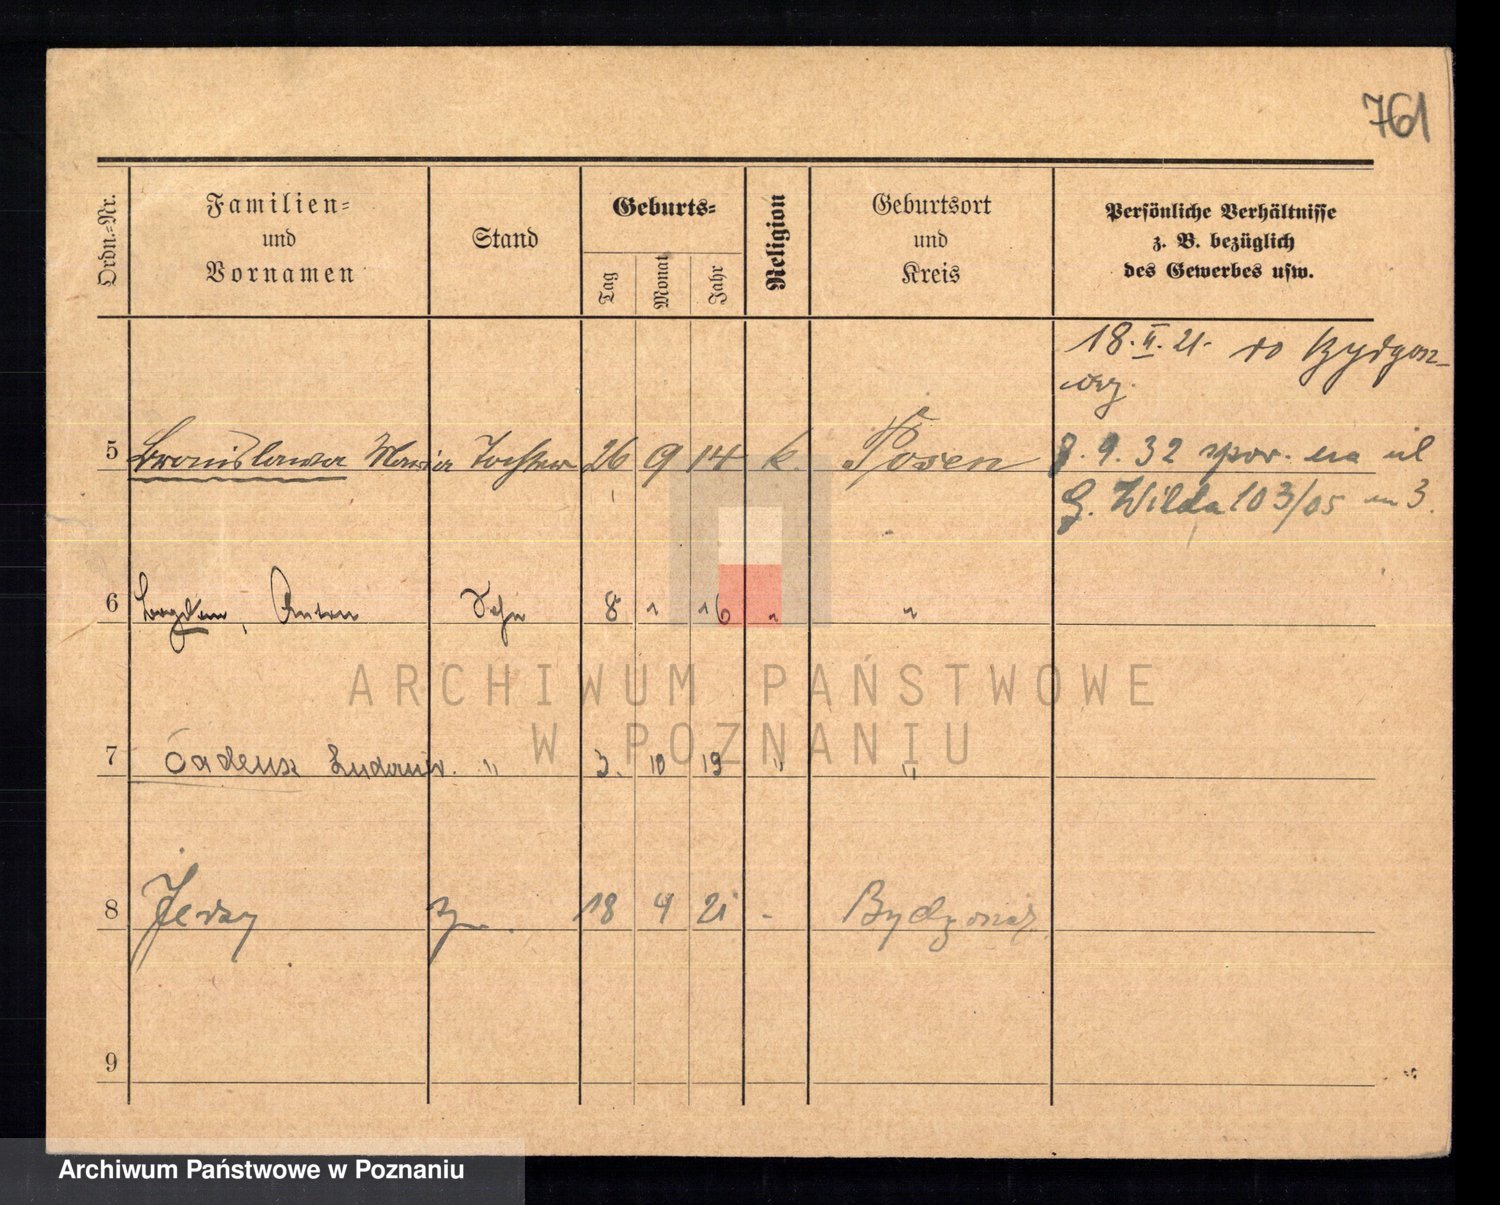 761
Ordn.=Nr.
Familien=
und
Vornamen
Stand
Geburts=
Tag
Monat
Jahr
Religion
Geburtsort
und
Kreis
Persönliche Verhältnisse
z. B. bezüglich
des Gewerbes usw.
18. II. 21. do Bydgosz-
czy.
5 Bronislawa Maria Tochter 26 9 14 k. Posen 8. 9. 32 spor. na ul
G. Wilda 103/05 m 3.
6 Bogdan, Anton Sohn 8 " 16 " "
7 Tadeusz " 3. 10 19 " "
8 Jerzy 18 4 21 - Bydgoszcz
9
ARCHIWUM PAŃSTWOWE
W POZNANIU
Archiwum Państwowe w Poznaniu